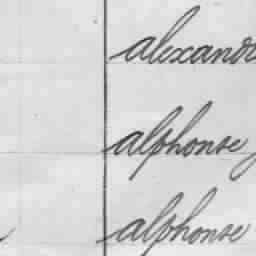 alexand
alphonse
alphonse